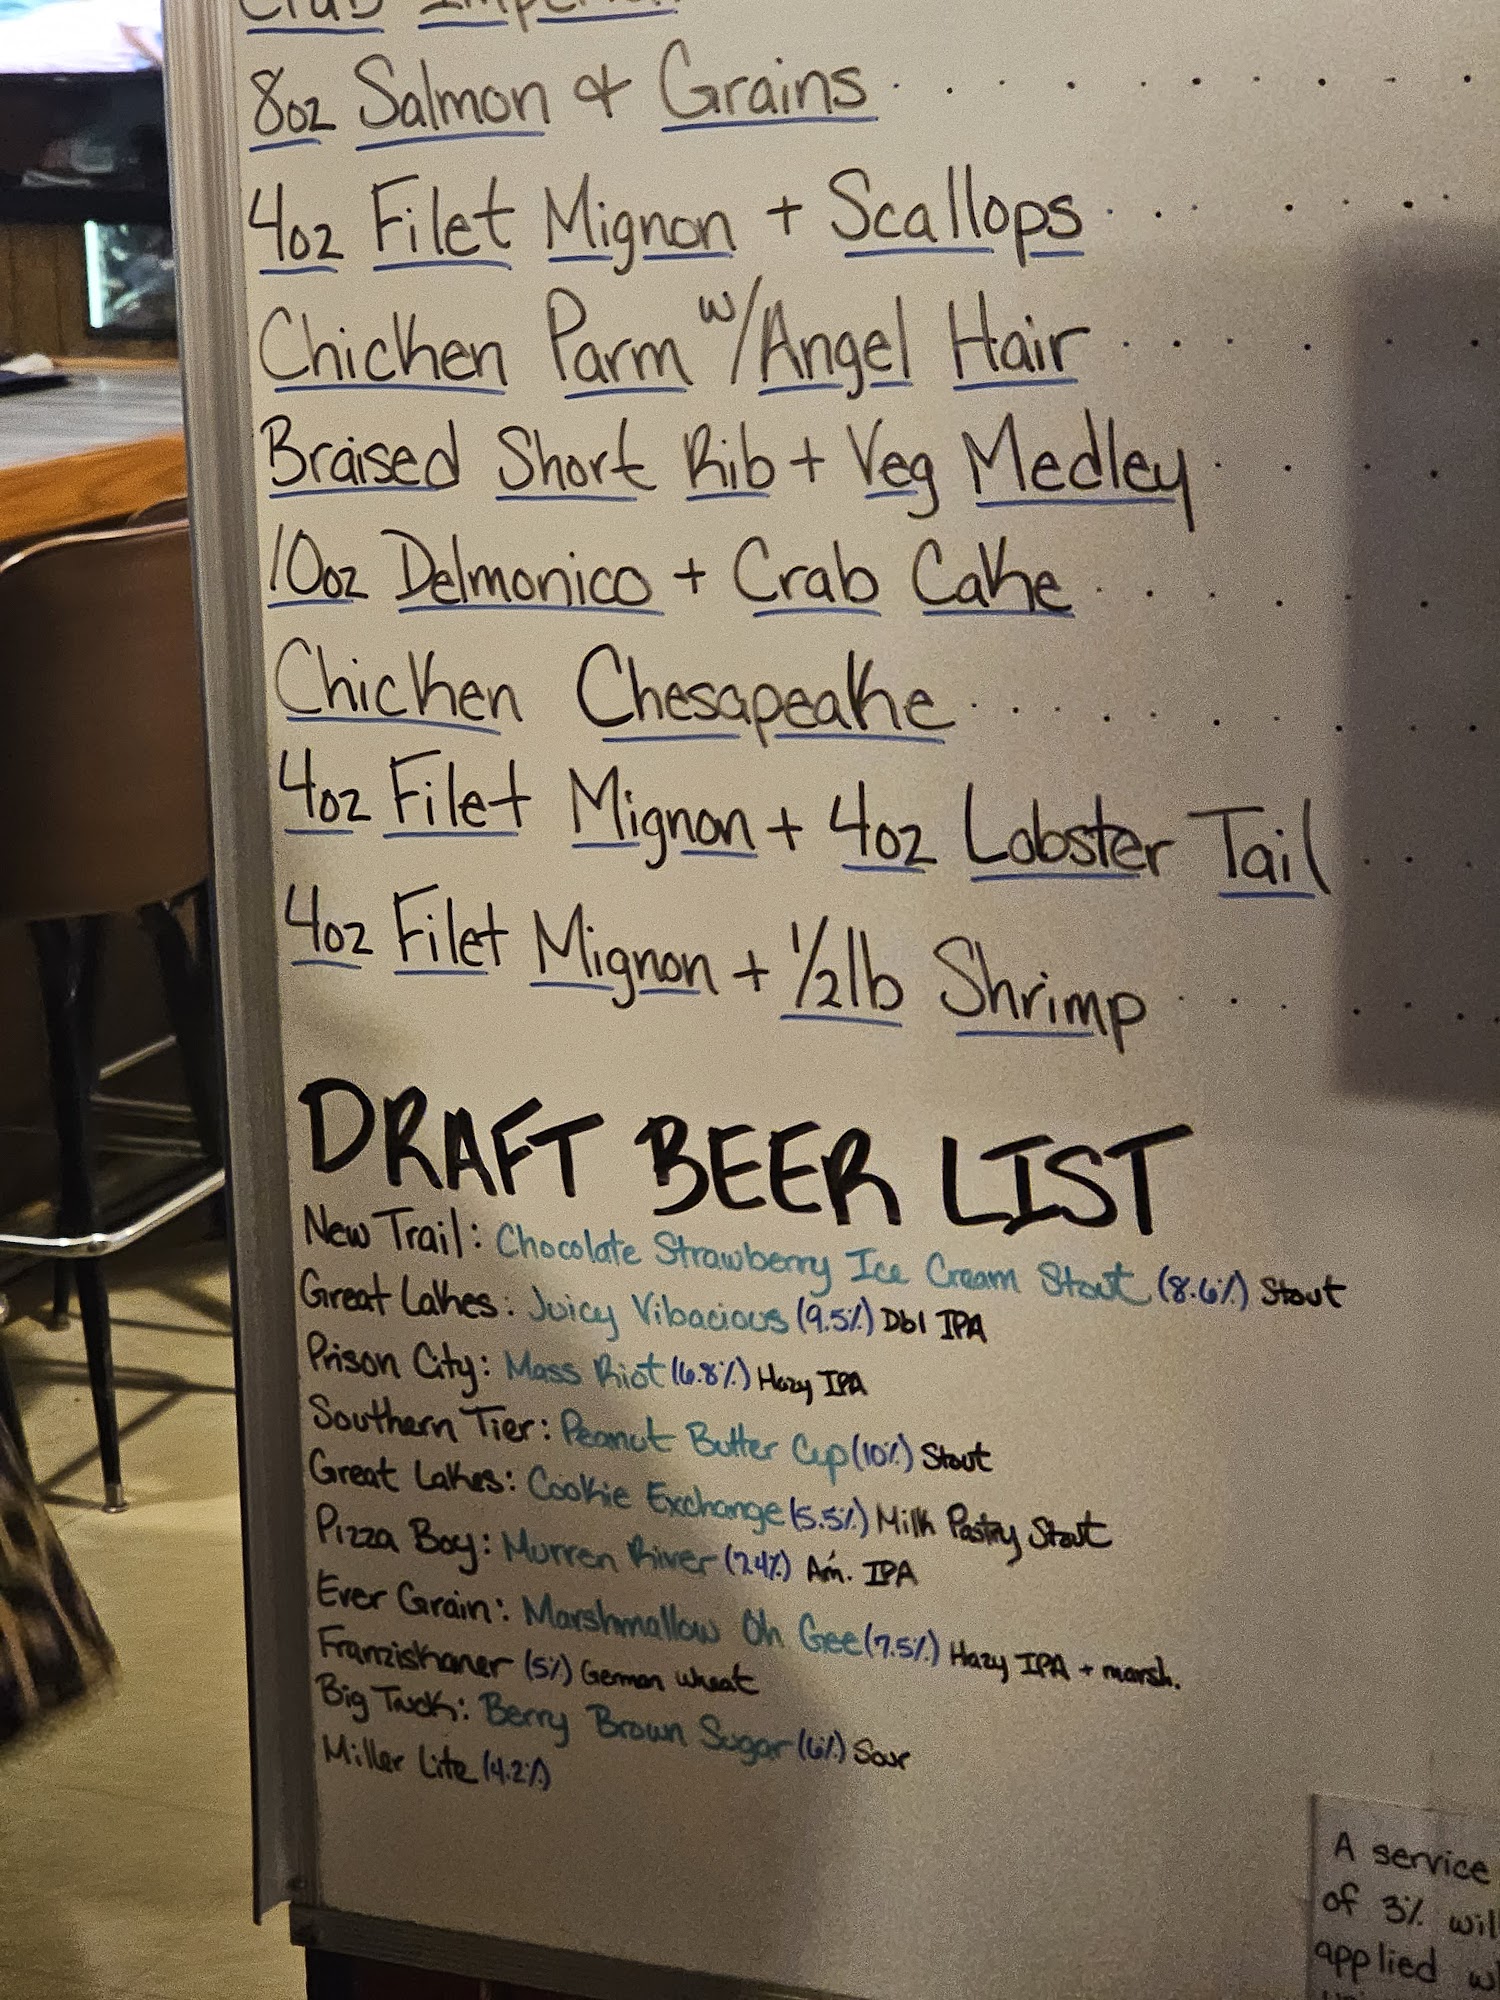 Crab Imperial
8oz Salmon & Grains . . . . . . . .
4oz Filet Mignon + Scallops . . . . . . .
Chicken Parm w/Angel Hair . . . . . . .
Braised Short Rib + Veg Medley . . . . .
10oz Delmonico + Crab Cake . . . . . . .
Chicken Chesapeake . . . . . . . . .
4oz Filet Mignon + 4oz Lobster Tail . . . .
4oz Filet Mignon + 1/2lb Shrimp . . . . . .
DRAFT BEER LIST
New Trail: Chocolate Strawberry Ice Cream Stout (8.6%) Stout
Great Lakes: Juicy Vibacious (9.5%) Dbl IPA
Prison City: Mass Riot (6.8%) Hazy IPA
Southern Tier: Peanut Butter Cup (10%) Stout
Great Lakes: Cookie Exchange (5.5%) Milk Pastry Stout
Pizza Boy: Murren River (7.4%) Am. IPA
Ever Grain: Marshmallow Oh Gee (7.5%) Hazy IPA + marsh.
Franziskaner (5%) German wheat
Big Truck: Berry Brown Sugar (6%) Sour
Miller Lite (4.2%)
A service
of 3% will
applied